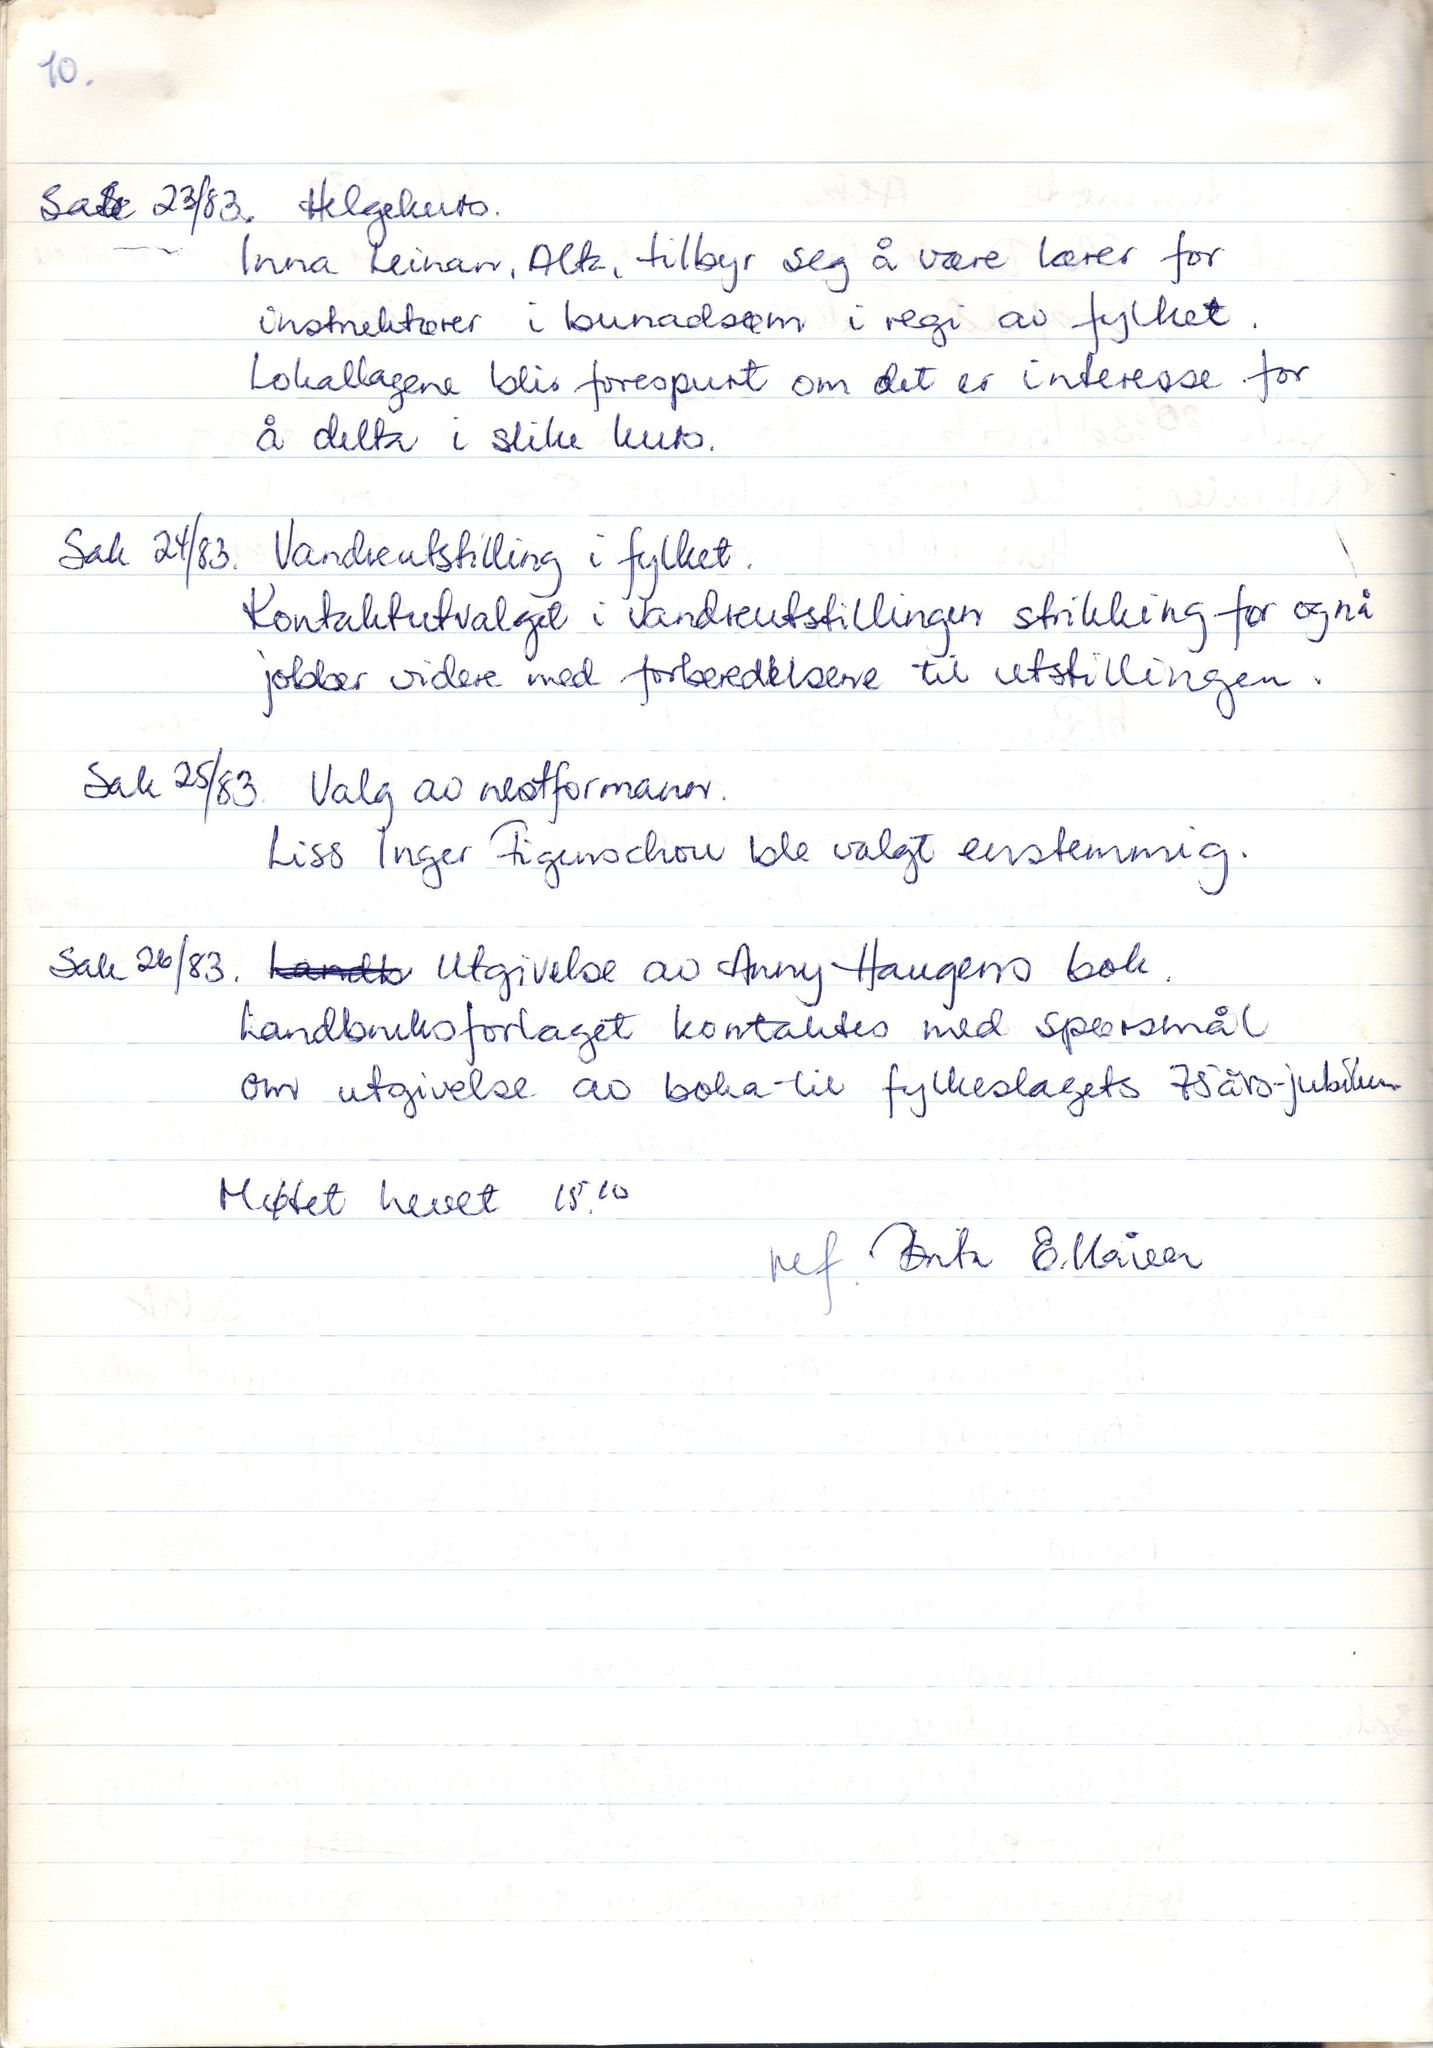 10.
Sak 23/83. Helgekurs.
Inna Leinan, Alta, tilbyr seg å være lærer for
instruktører i bunadsøm i regi av fylket.
Lokallagene blir forespurt om det er interesse for
å delta i slike kurs.
Sak 24/83. Vandreutstilling i fylket.
Kontaktutvalget i vandreutstillingen strikking før og nå
jobber videre med forberedelsene til utstillingen.
Sak 25/83. Valg av nestformann.
Liss Inger Figenschou ble valgt enstemmig.
Sak 26/83. Landb Utgivelse av Anny Haugens bok.
Landbruksforlaget kontaktes med spørsmål
om utgivelse av boka til fylkeslagets 75års-jubileum
Møtet hevet 15.10
ref. Brita E.